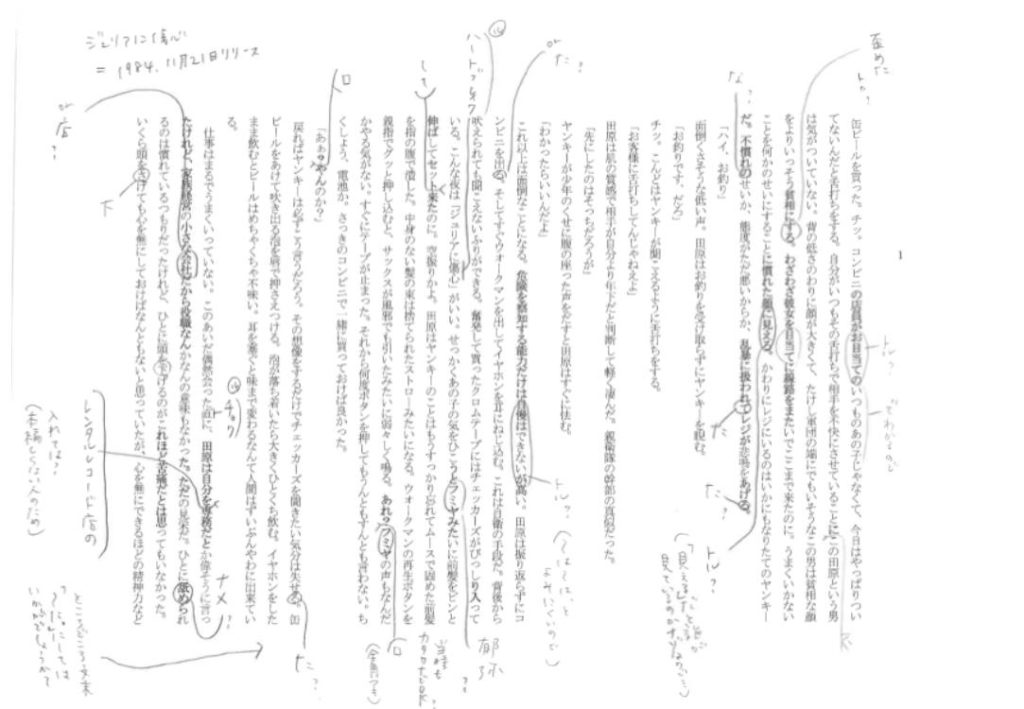 1
缶ビールを買った。チッ。コンビニの店員がお目当てのいつものあの子じゃなくて、今日はやっぱりつい
てないんだと舌打ちをする。自分がいつもその舌打ちで相手を不快にさせていることにこの田原という男
は気がついていない。背の低さのわりに顔が大きくて、たけし軍団の端にでもいそうなこの男は貧相な顔
をよりいっそう貧相にする。わざわざ彼女を目当てに線路をまたいでここまで来たのに。うまくいかない
ことを何かのせいにすることに慣れた顔に見える。かわりにレジにいるのはいかにもなりたてのヤンキー
だ。不慣れのせいか、態度がただ悪いからか、乱暴に扱われてレジが悲鳴をあげる。
「ハイ、お釣り」
面倒くさそうな低い声。田原はお釣りを受け取らずにヤンキーを睨む。
「お釣りです、だろ」
チッ。こんどはヤンキーが聞こえるように舌打ちをする。
「お客様に舌打ちしてんじゃねえよ」
田原は肌の質感で相手が自分より年下だと判断して軽く凄んだ。親衛隊の幹部の真似だった。
「先にしたのはそっちだろうが」
ヤンキーが少年のくせに腹の座った声をだすと田原はすぐに怯む。
「わかったらいいんだよ」
これ以上は面倒なことになる。危険を察知する能力だけは自慢はできないが高い。田原は振り返らずにコ
ンビニを出る。そしてすぐウォークマンを出してイヤホンを耳にねじ込む。これは自衛の手段だ。背後から
吠えられても聞こえないふりができる。奮発して買ったクロムテープにはチェッカーズがびっしり入って
いる。こんな夜は「ジュリアに傷心」がいい。せっかくあの子の気をひこうとフミヤみたいに前髪をピンと
伸ばしてセット来たのに。空振りかよ。田原はヤンキーのことはもうすっかり忘れてムースで固めた前髪
を指の腹で潰した。中身のない髪の束は捨てられたストローみたいになる。ウォークマンの再生ボタンを
親指でグッと押し込むと、サックスが風邪でも引いたみたいに弱々しく鳴る。あれ?フミヤの声もなんだ
かやる気がない。すぐにテープが止まった。それから何度ボタンを押してもうんともすんとも言わない。ち
くしょう、電池か。さっきのコンビニで一緒に買っておけば良かった。
「あぁ?やんのか?」
戻ればヤンキーは必ずこう言うだろう。その想像をするだけでチェッカーズを聞きたい気分は失せる。缶
ビールをあけて吹き出る泡を唇で押さえつける。泡が落ち着いたら大きくひとくち飲む。イヤホンをした
まま飲むとビールはめちゃくちゃ不味い。耳を塞ぐと味まで変わるなんて人間はずいぶんやわに出来てい
る。
仕事はまるでうまくいっていない。このあいだ偶然会った連に、田原は自分を専務だとか偉そうに言っ
たけれど、家族経営の小さな会社だから役職なんかなんの意味もなかった。ただの見栄だ。ひとに舐められ
るのは慣れているつもりだったけれど、ひとに頭を下げるのがこれほど苦痛だとは思ってもいなかった。
いくら頭をさげても心を無にしておけばなんともないと思っていたが、心を無にできるほどの精神力など
歪めた
トカ?
トル?
な?
た
た?
トル?
or
た?
トル?
ハートブレイク
して
郁弥
??
当時も
カタカナもOK
?
ロ
た?
ジュリアに傷心
= 1984.11月21日リリース
or
店
?
下
チェック
ナメ
?
レンタルレコード店の
入れては?